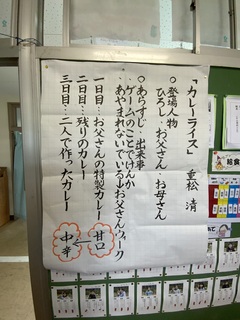 「カレーライス」 重松 清
○登場人物
ひろし・お父さん・お母さん
○あらすじ・出来事
・ゲームのことでけんか
あやまれないでいる↓お父さんウィーク
一日目…お父さんの特製カレー 甘口
二日目…残りのカレー
三日目…二人で作ったカレー 中辛
給食